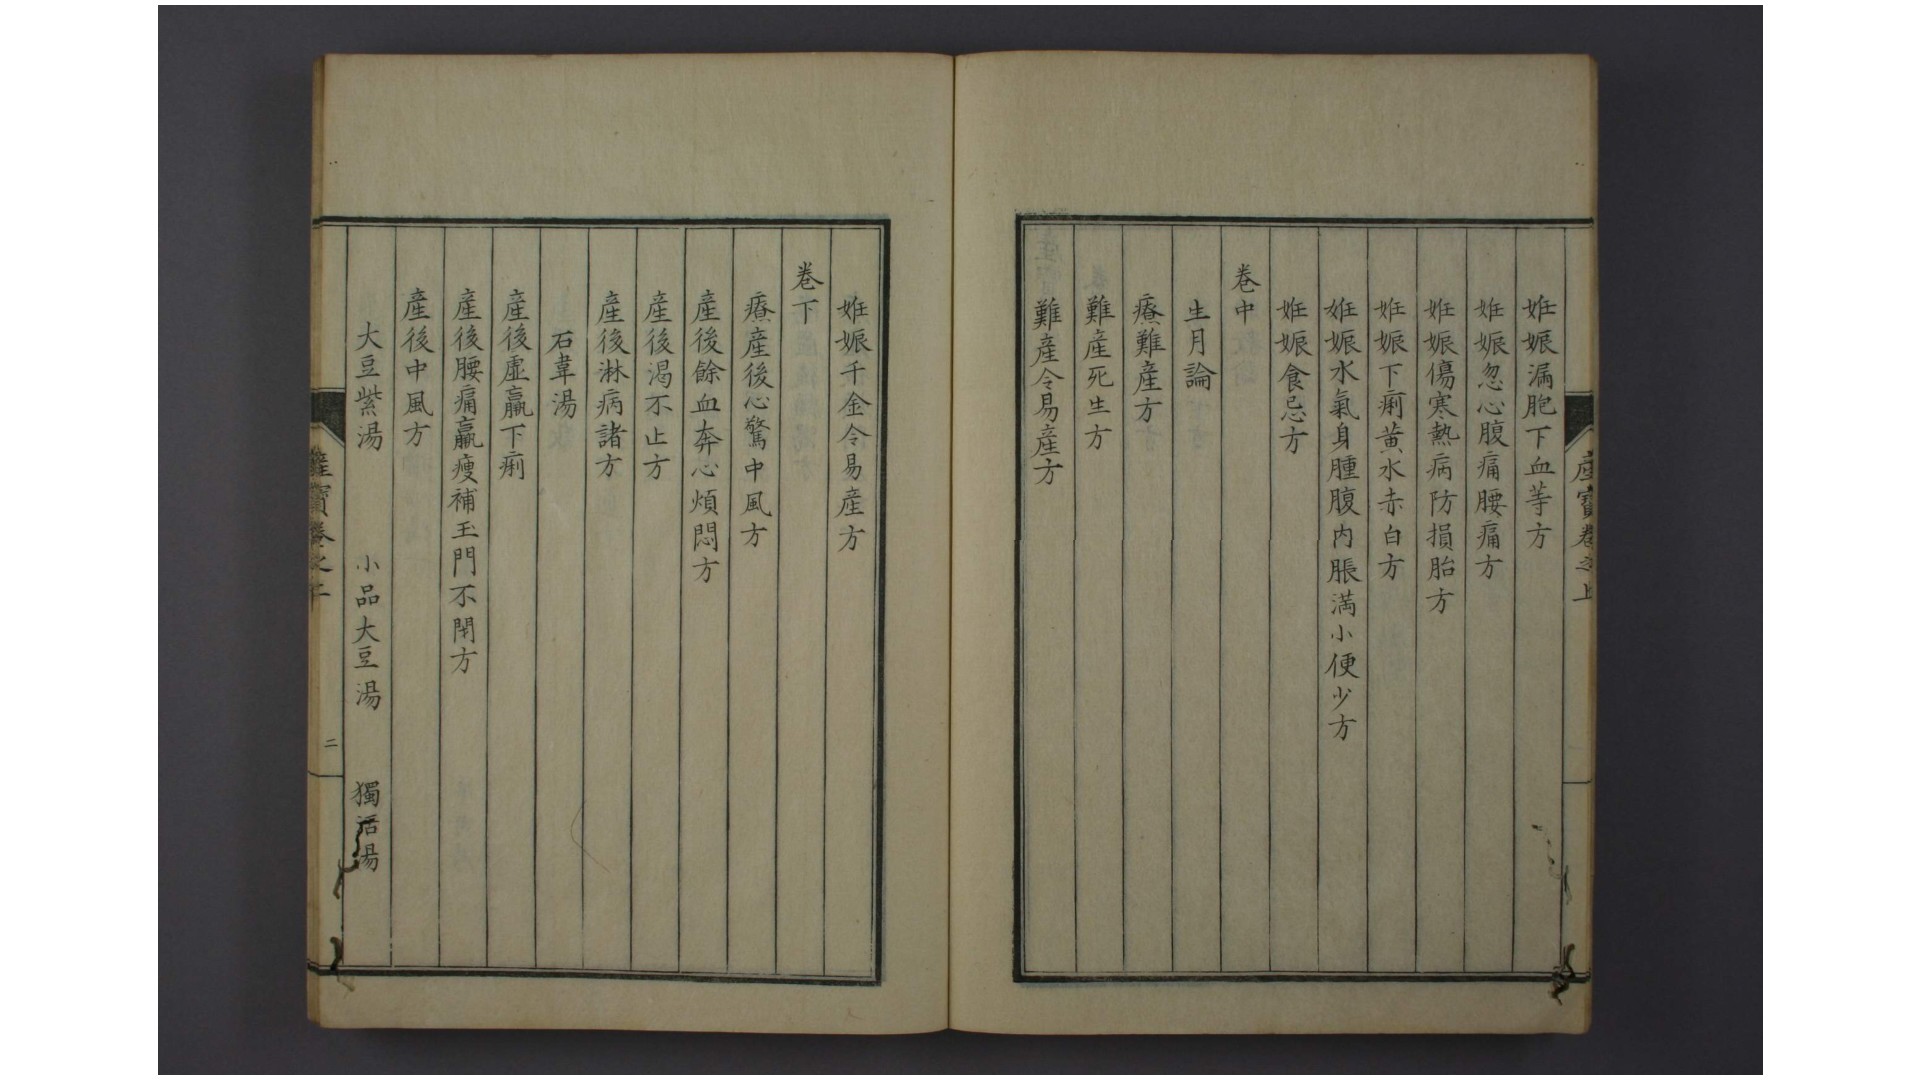 産寶卷之上
姙娠漏胞下血等方
姙娠忽心腹痛腰痛方
姙娠傷寒熱病防損胎方
姙娠下痢黄水赤白方
姙娠水氣身腫腹内脹満小便少方
姙娠食忌方
卷中
生月論
療難産方
難産死生方
難産令易産方
姙娠千金令易産方
卷下
療産後心驚中風方
産後餘血奔心煩悶方
産後渴不止方
産後淋病諸方
石韋湯
産後虛羸下痢
産後腰痛羸瘦補玉門不閉方
産後中風方
大豆紫湯 小品大豆湯 獨活湯
産寶卷之上
二